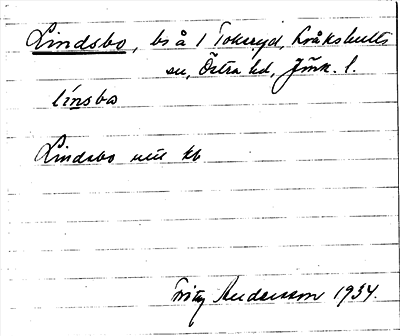 Lindsbo, bs å 1 Tokeryd, Kråkshults
sn, Östra hd, Jönk. l.
línsbo
Lindsbo utt kb
Fritz Andersson 1934.